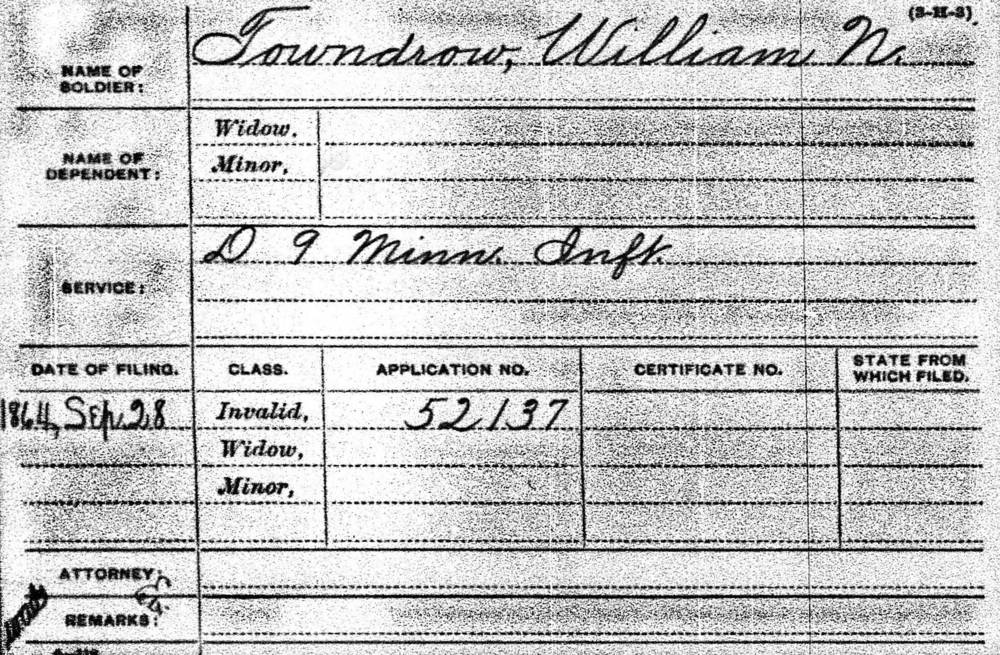 (3-H-3)
NAME OF SOLDIER: Towndrow, William N.
NAME OF DEPENDENT: Widow.
Minor,
SERVICE: D 9 Minn. Inft.
DATE OF FILING. CLASS. APPLICATION NO. CERTIFICATE NO. STATE FROM WHICH FILED.
1864, Sep. 28 Invalid, 52137
Widow,
Minor,
ATTORNEY:
REMARKS: